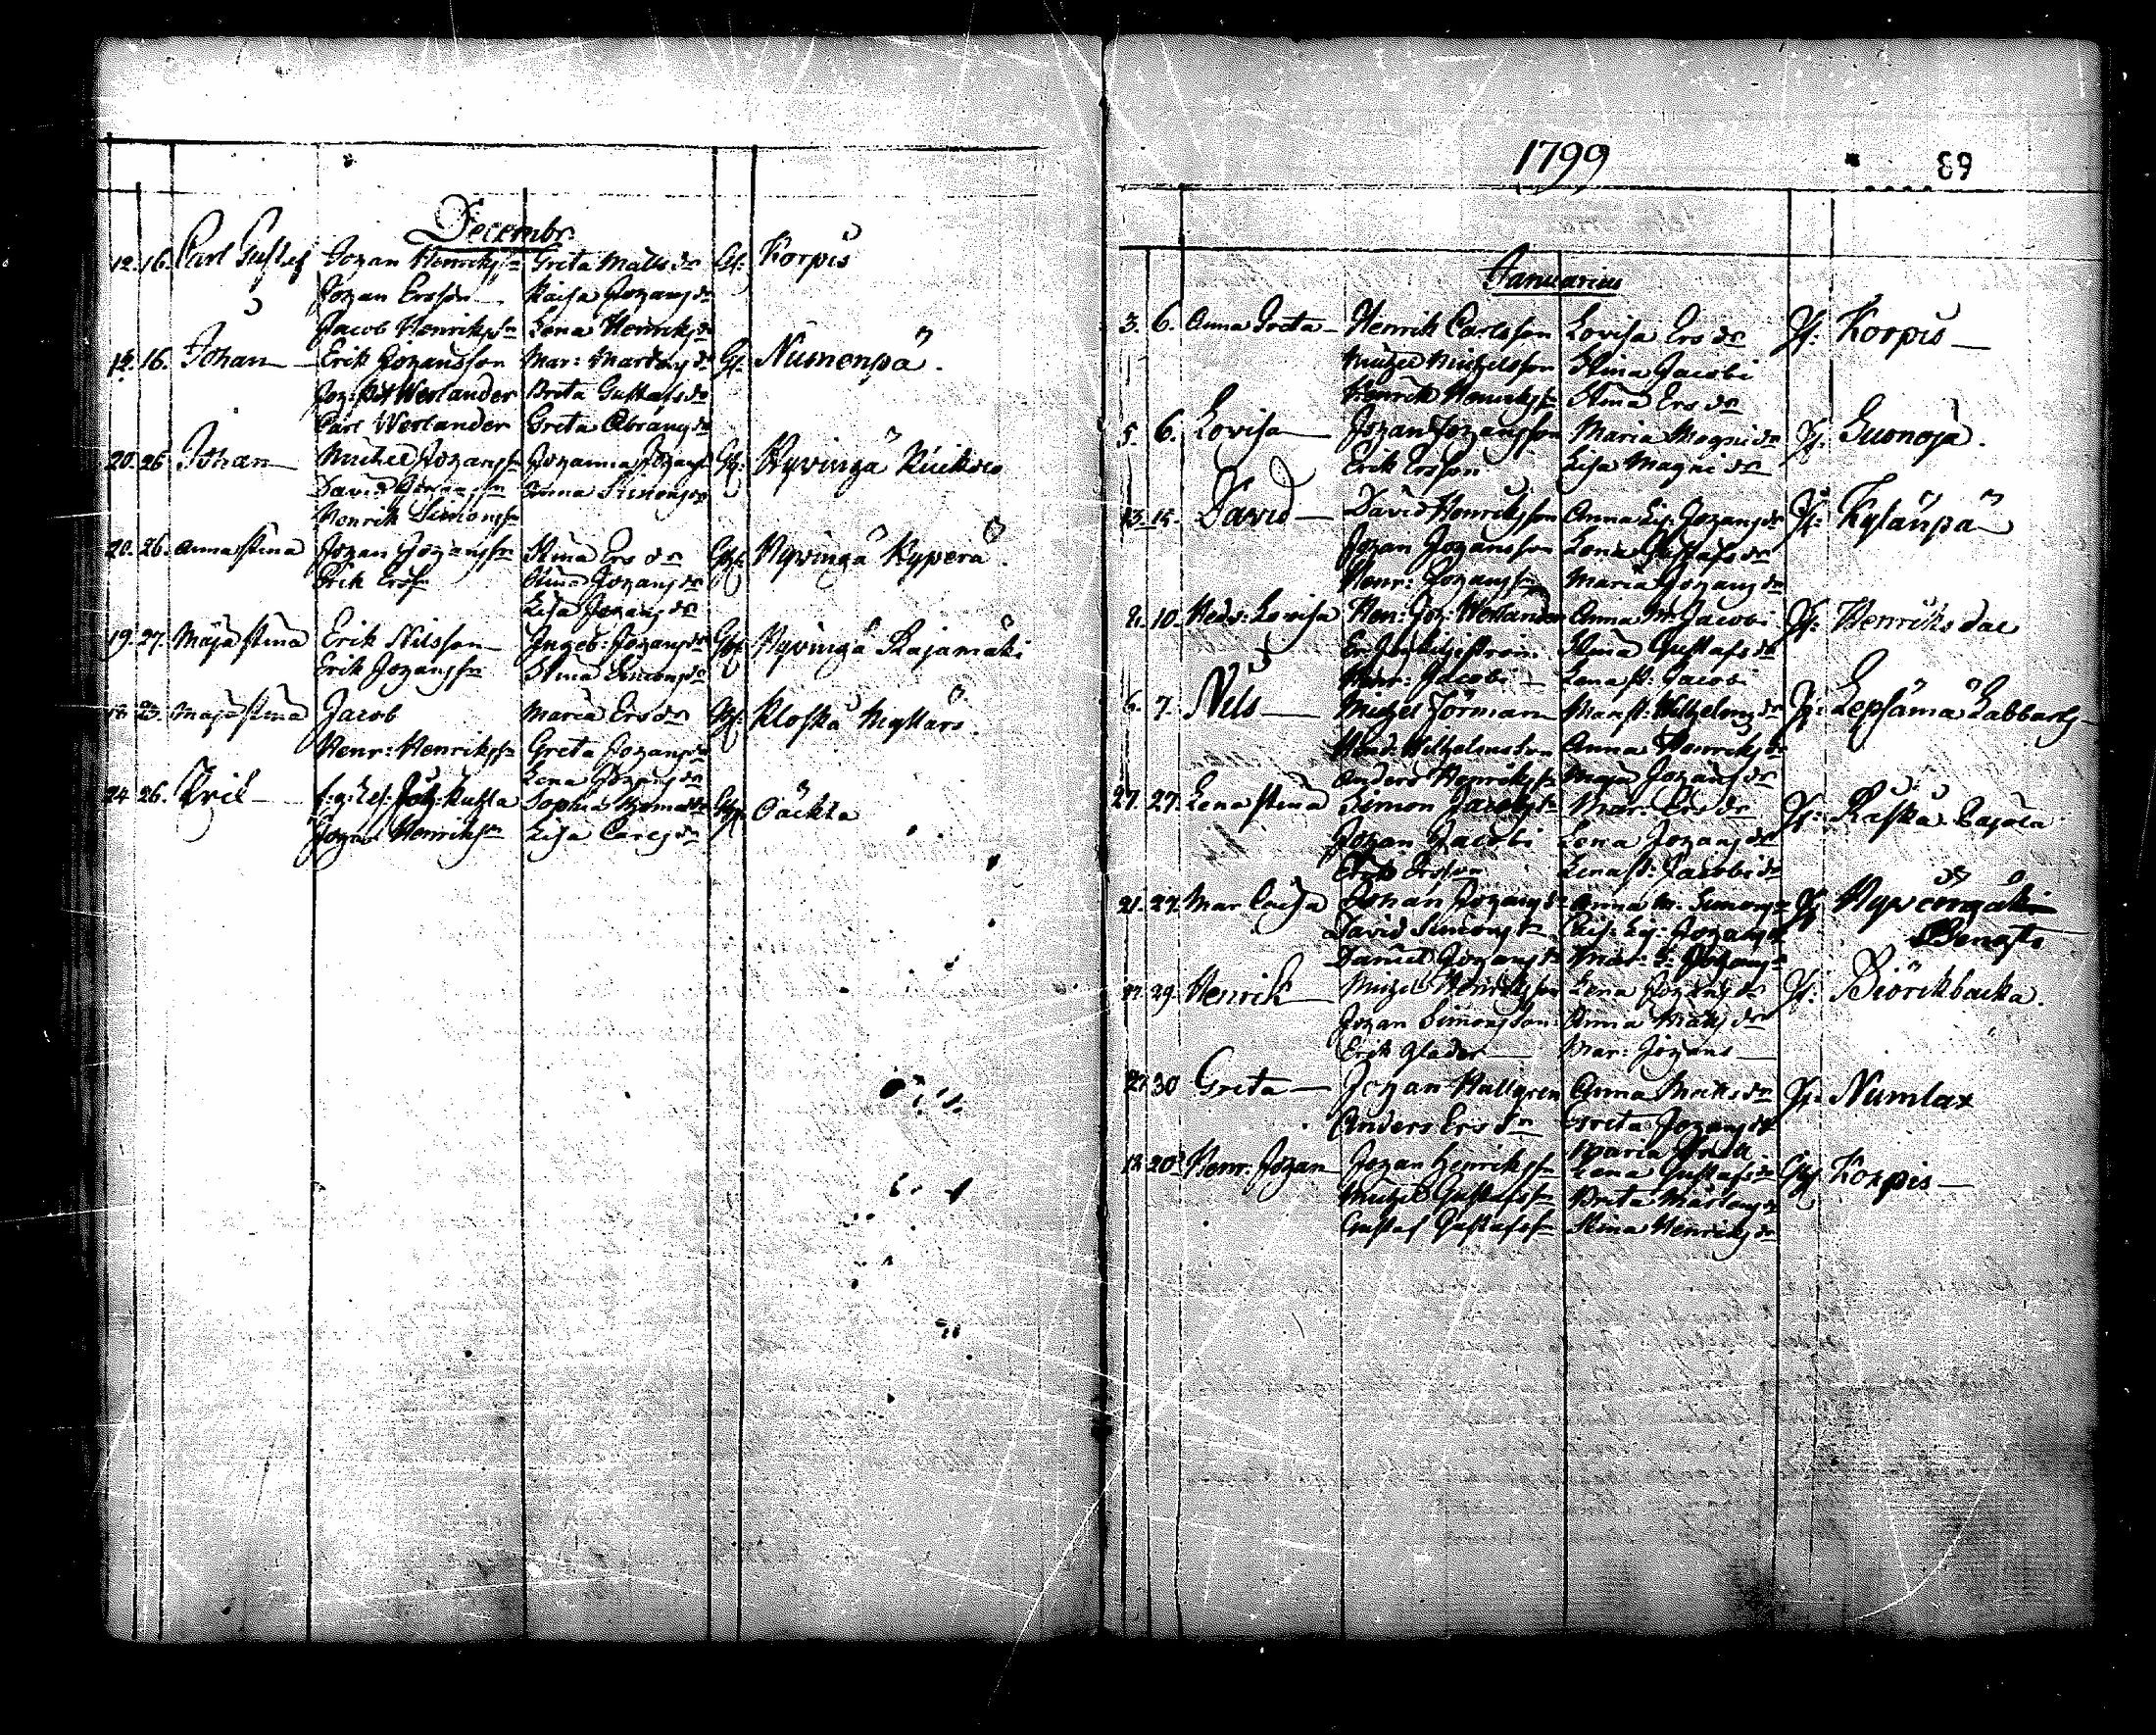 Decembr.
12. 16. Carl Gustaf Johan Henrikss:n Greta Matts dr Gf: Korpis
Johan Ersson Kaisa Johans dr
Jacob Henrikss:n Lena Henriks dr
12. 16. Johan Erik Johansson Mar: Martens dr Gf: Numenpä.
Werlander Brita Gustafs dr
Carl Werlander Greta Abrams dr
20. 26 Johan Michel Johanss:n Johanna Johans Hyvingä
David Anna Simons dr
Henrik Simonss:n
20. 26. Anna Stina Johan Johanss:n Stina Ers dr Hyvingä Kyperä.
Erik Ers:n Stina Johans dr
Lisa Johans dr
19. 27. Maja Stina Erik Nilsson Ingeb: Johans dr Hyvingä Rajamäki
Erik Johanss:n Stina Simons dr
18 23. Maja Stina Jacob Maria Ers dr Kloska Myllari.
Henr: Henrikss:n Greta Johans dr
Lena Johans dr
24 26. Erik Sophia Thomæ dr
Johan Henrikss:n Lisa Carls dr
1799
89
Januarius
3. 6. Anna Greta Henrik Carlsson Lovisa Ers dr Jf: Korpis
Michel Michelsson Stina Jacobi
Henrik Henrikss:n Stina Ers dr
5. 6. Lovisa Johan Johansson Maria Magni dr Jf: Suonoja.
Erik Ersson Lisa Magni dr
13. 15. David David Henriksson Anna Lis: Johans dr Jf: Kylänpä
Johan Johansson Lena Gustafs dr
Henr: Johanss:n Maria Johans dr
10. Hedv: Lovisa Hen: Joh: Werlander Anna M: Jacobi Jf: Henriksdal
Stina Gustafs dr
Henr: Jacobi Lena St: Jacobi
6. 7. Nils Michel Förman Wilhelms dr Jf: Lepsämä Labbars
Wilhelmsson Anna Henriks dr
Anders Henrikss:n Maja Johans dr
27. 27. Lena Stina Simon Jacobs:n Mar: Ers dr Jf:
Johan Jacobi Lena Johans dr
Erik Ersson Lena St: Jacobi dr
21. 27. Mar Caisa Johan Johans:n Anna M: Simons dr Jf
David Simons:n Cais: Lis: Johans dr Bengts
Daniel Johans:n Mar: Johans dr
29. Henrik Michel Henriksson Lena Johans dr Jf: Biörckbacka.
Johan Simonsson Anna Matts dr
Erik Glader Mar: Johans
27. 30 Greta Johan Hallgren Anna Matts dr Jf: Numlax
Anders Ers S:n Greta Johans dr
Maria
18. 20 Henr. Johan Johan Henrikss:n Lena Gustafs dr Korpis
Michel Gustafss:n Brita Martens dr
Gustaf Gustafss:n Stina Henriks dr